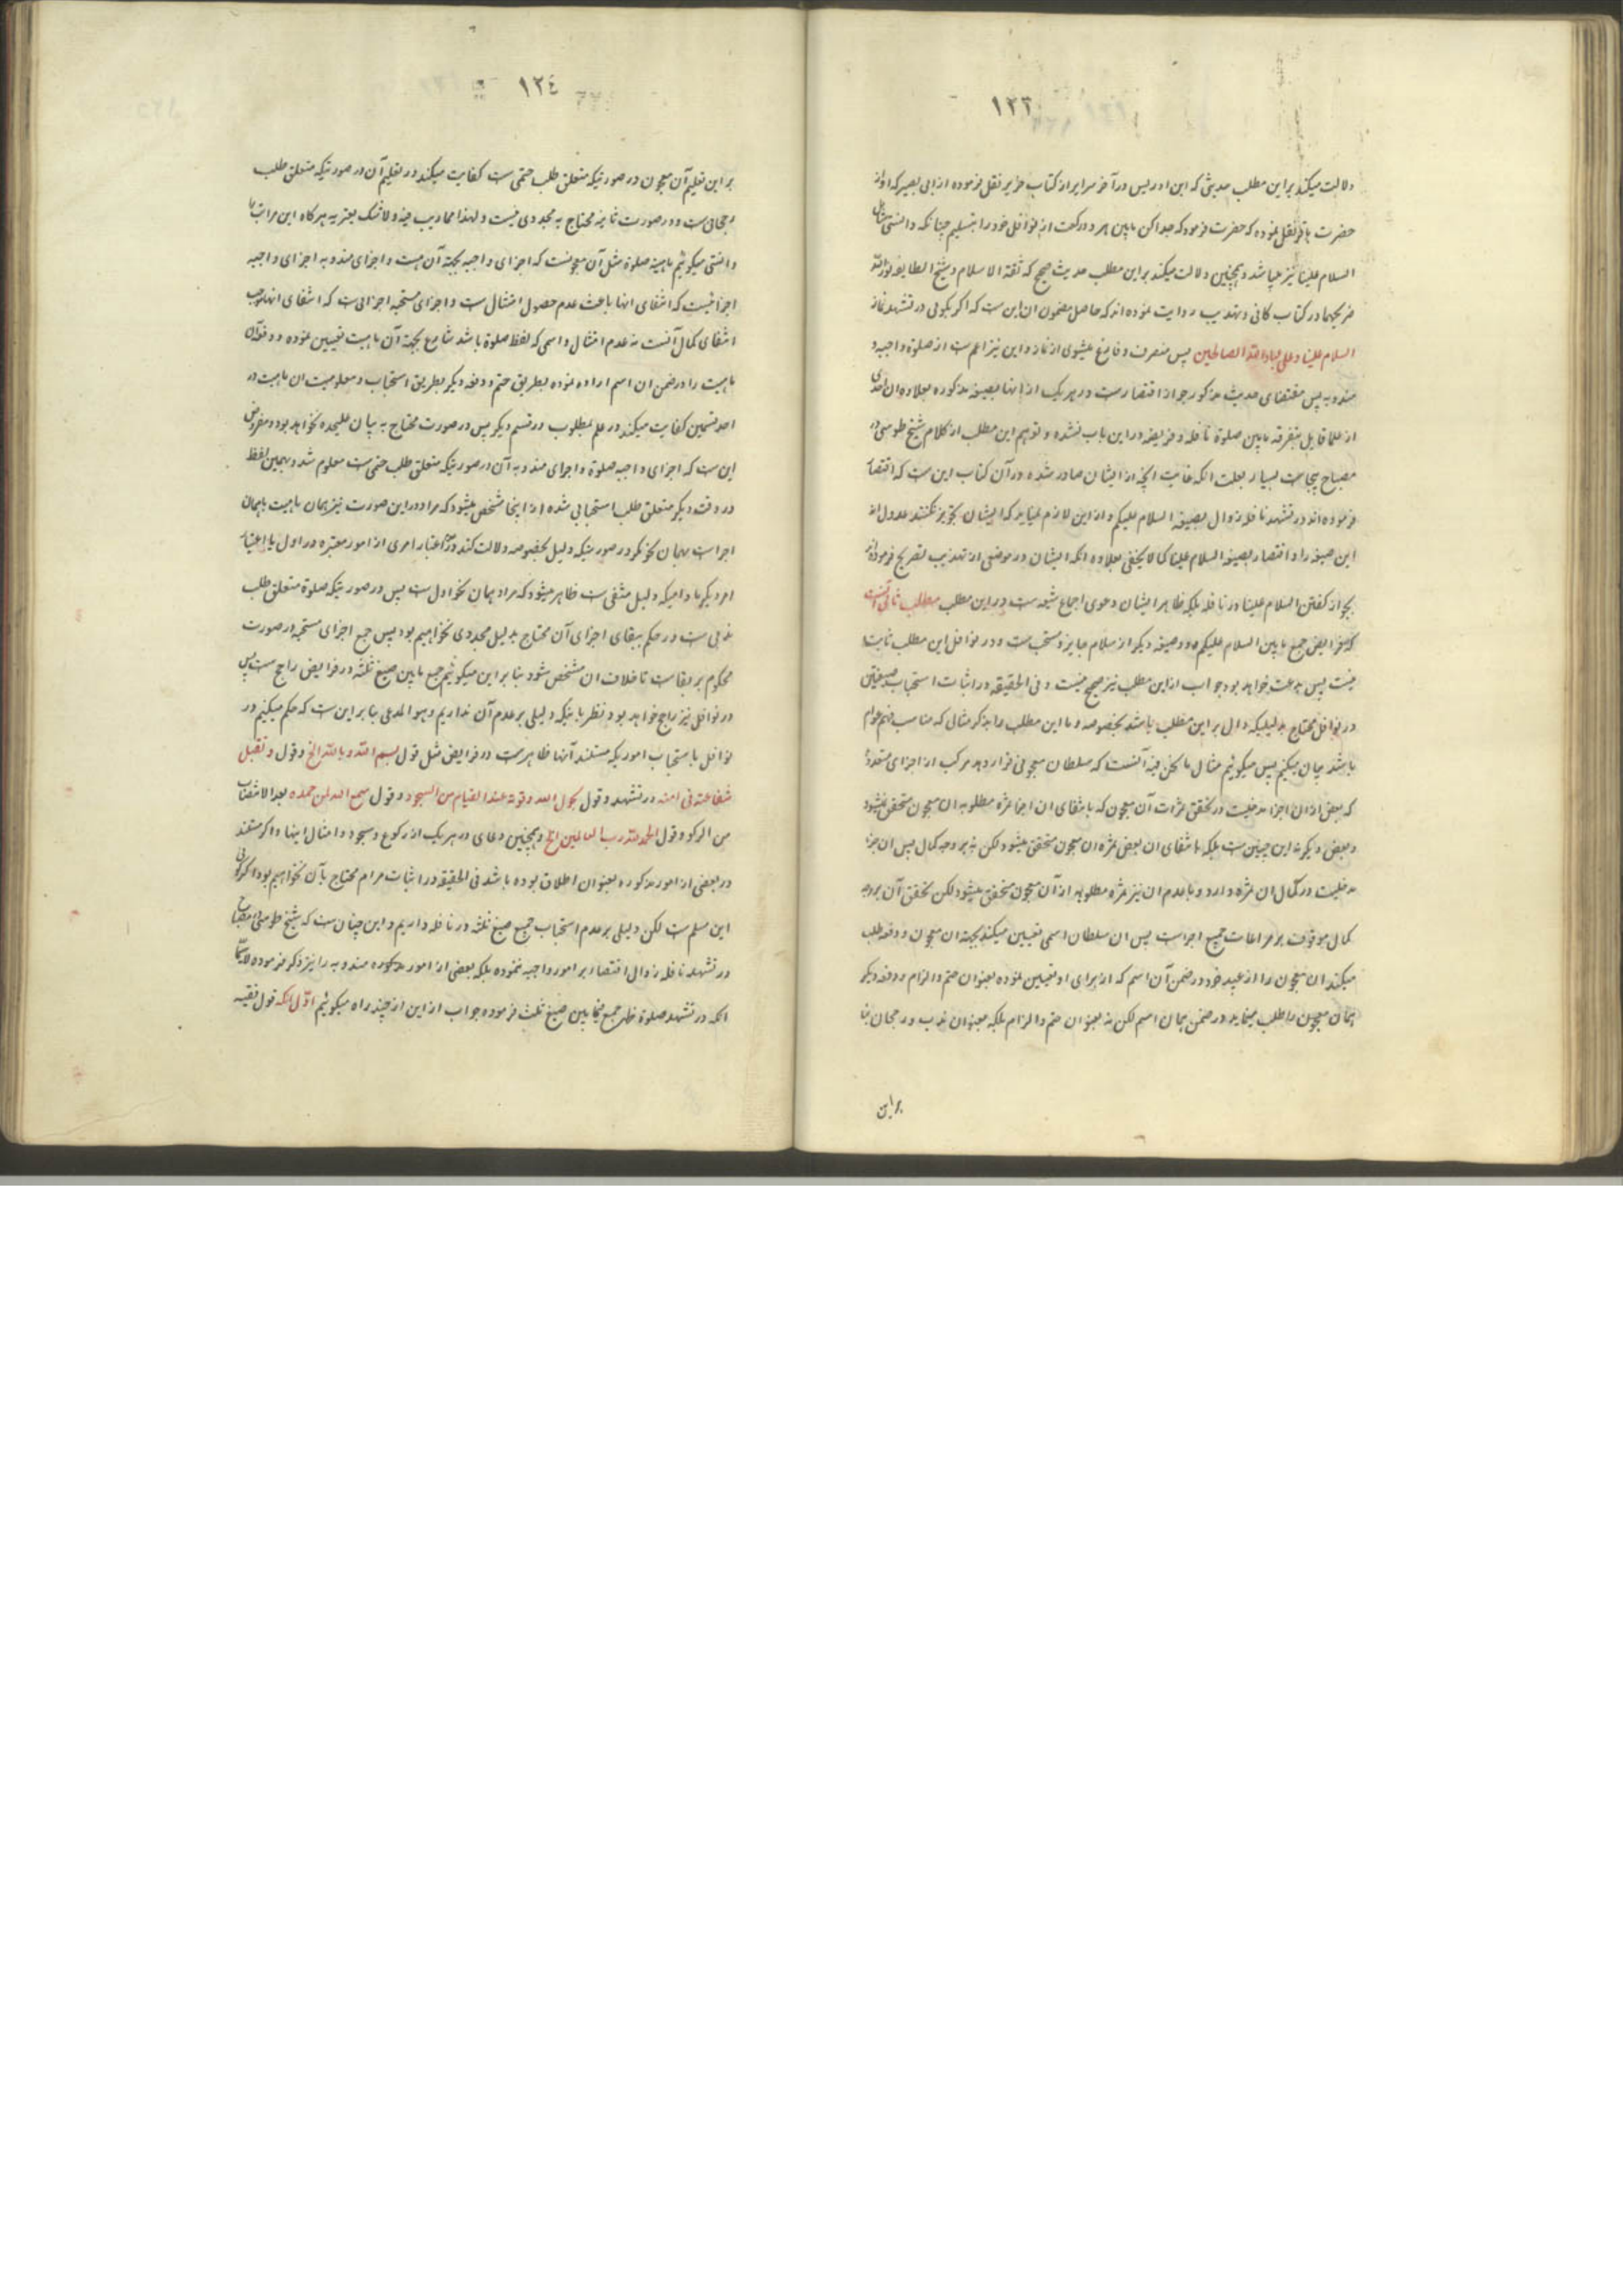 ١٢٣
دلالت میکند بر این مطلب حدیثی که ابن ادریس در آخر سرایر از کتاب حریز نقل فرموده از ابی بصیر که او از
حضرت باقر نقل نموده که حضرت فرمود که جدا کن مابین هر دو رکعت از نوافل خود را بتسلیم چنانکه دانستی شامل
السلام علینا نیز میباشد و همچنین دلالت میکند بر این مطلب حدیث صحیح که ثقة الاسلام و شیخ الطایفه نور الله
ضریحهما در کتاب کافی و تهذیب روایت نموده اند که حاصل مضمون ان این ست که اگر بگوئی در تشهد نماز
السلام علینا و علی عباد الله الصالحین پس منصرف و فارغ میشوی از نماز و این نیز اعم ست از صلوة واجبه و
مندوبه پس مقتضای حدیث مذکور جواز اقتصار ست در هر یک از انها بصیغه مذکوره بعلاوه ان احدی
از علما قایل بتفرقه مابین صلوة نافله و فریضه در این باب نشده و توهم این مطلب از کلام شیخ طوسی در
مصباح بیجاست بسیار بعلت انکه غایت انچه از ایشان صادر شده در آن کتاب این ست که اقتصار
فرموده اند در تشهد نافله زوال بصیغه السلام علیکم و از این لازم نمیاید که ایشان تجویز نکنند عدول از
این صیغه را و اقتصار بصیغه السلام علینا کما لا یخفی بعلاوه انکه ایشان در موضعی از تهذیب تصریح فرموده اند
بجواز گفتن السلام علینا در نافله بلکه ظاهر ایشان دعوی اجماع شیعه ست در این مطلب مطلب ثانی آنست
که در فرایض جمع مابین السلام علیکم و دو صیغه دیگر از سلام جایز و مستحب ست و در نوافل این مطلب ثابت
نیست پس بدعت خواهد بود جواب از این مطلب نیز صحیح نیست و فی الحقیقه در اثبات استحباب صیغتین
در نوافل محتاج بدلیلیکه دال بر این مطلب باشد بخصوصه و ما این مطلب را بذکر مثالی که مناسب فهم عوام
باشد بیان میکنیم پس میگوئیم مثال ما نحن فیه آنست که سلطان معجونی قرار دهد مرکب از اجزای متعدده
که بعض از ان اجزا مدخلیت در تحقق ثمرات آن معجون که بانتفای ان اجزا ثمره مطلوبه ان معجون متحقق نمیشود
و بعض دیگر نه این چنین ست بلکه بانتفای ان بعض ثمره ان معجون متحقق میشود لکن نه بر وجه کمال پس ان جزء
مدخلیت در کمال ان ثمره دارد و با عدم ان نیز ثمره مطلوبه از آن معجون متحقق میشود لکن تحقق آن بر وجه
کمال موقوف بر مراعات جمیع اجزاست پس ان سلطان اسمی تعیین میکند بجهة ان معجون و دفعه طلب
میکند ان معجون را از عبید خود در ضمن آن اسم که از برای او تعیین نموده بعنوان حتم و الزام و دفعه دیگر
همان معجون را طلب مینماید در ضمن همان اسم لکن نه بعنوان حتم و الزام بلکه بعنوان ندب و رجحان بنا
بر این
١٢٤
بر این تعلیم آن معجون در صورتیکه متعلق طلب حتمی ست کفایت میکند در تعلیم آن در صورتیکه متعلق طلب
رجحانی ست و در صورت ثانیه محتاج به مجددی نیست و لهذا مما لا ریب فیه و لا شک یعتریه هر گاه این مراتب را
دانستی میگوئیم ماهیة صلوة مثل آن معجونست که اجزای واجبه بجهة آن هست و اجزای مندوبه اجزای واجبه
اجزائیست که انتفای انها باعث عدم حصول امتثال ست و اجزای مستحبه اجزائی ست که انتفای انها موجب
انتفای کمال آنست نه عدم امتثال و اسمی که لفظ صلوة باشد شارع بجهة آن ماهیت تعیین نموده و دفعه آن
ماهیت را در ضمن ان اسم اراده نموده بطریق حتم و دفعه دیگر بطریق استحباب و معلومیت ان ماهیت در
احد قسمین کفایت میکند در علم بمطلوب در قسم دیگر پس در صورت محتاج به بیان علیحده نخواهد بود و مفروض
این ست که اجزای واجبه صلوة و اجزای مندوبه آن در صورتیکه متعلق طلب حتمی ست معلوم شد و بهمین لفظ
در وقت دیگر متعلق طلب استحبابی شده از اینجا مشخص میشود که مراد در این صورت نیز همان ماهیت باهمان
اجزاست بهمان نحو مگر در صورتیکه دلیل بخصوصه دلالت کند بر عدم اعتبار امری از امور معتبره در اول یا اعتبار
امر دیگر مادامیکه دلیل منتفی ست ظاهر میشود که مراد همان نحو اول ست پس در صورتیکه صلوة متعلق طلب
ندبی ست در حکم ببقای اجزای آن محتاج بدلیل مجددی نخواهیم بود پس جمع اجزای مستحبه در صورت
محکوم بر بقاست تا خلاف ان مشخص شود بنا بر این میگوئیم جمع مابین صیغ ثلثه در فرایض راجح ست پس
در نوافل نیز راجح خواهد بود نظر باینکه دلیلی بر عدم آن نداریم و هو المدعی بنا بر این ست که حکم میکنیم در
نوافل باستحباب اموریکه مستند آنها ظاهر ست در فرایض مثل قول بسم الله و بالله الخ و قول و تقبل
شفاعته فی امته در تشهد و قول بحول الله و قوته عند القیام من السجود و قول سمع الله لمن حمده بعد الانتصاب
من الرکوع و قول الحمد لله رب العالمین الخ و همچنین دعای در هر یک از رکوع و سجود و امثال اینها و اگر مستند
در بعضی از امور مذکوره بعنوان اطلاق بوده باشد فی الحقیقه در اثبات مرام محتاج بآن نخواهیم بود اگر گوئی
این مسلم ست لکن دلیلی بر عدم استحباب جمیع صیغ ثلثه در نافله داریم و این چنان ست که شیخ طوسی در مصباح
در تشهد نافله زوال اقتصار بر امور واجبه ننموده بلکه بعضی از امور مذکوره مندوبه را نیز ذکر فرموده لاسیما
انکه در تشهد صلوة ظهر جمع فیمابین صیغ ثلث فرموده جواب از این از چند راه میگوئیم اوّل انکه قول فقیه